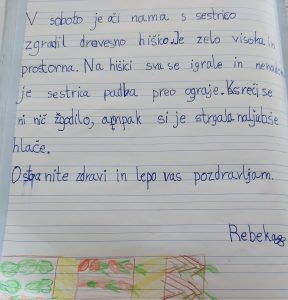 V soboto je ači nama s sestrico
zgradil drevesno hišico. Je zelo visoka in
prostorna. Na hišici sva se igrale in nenadoma
je sestrica padla preo ograje. K sreči se
ni nič zgodilo, ampak si je strgala najljubše
hlače.
Ostanite zdravi in lepo vas pozdravljam.
Rebeka